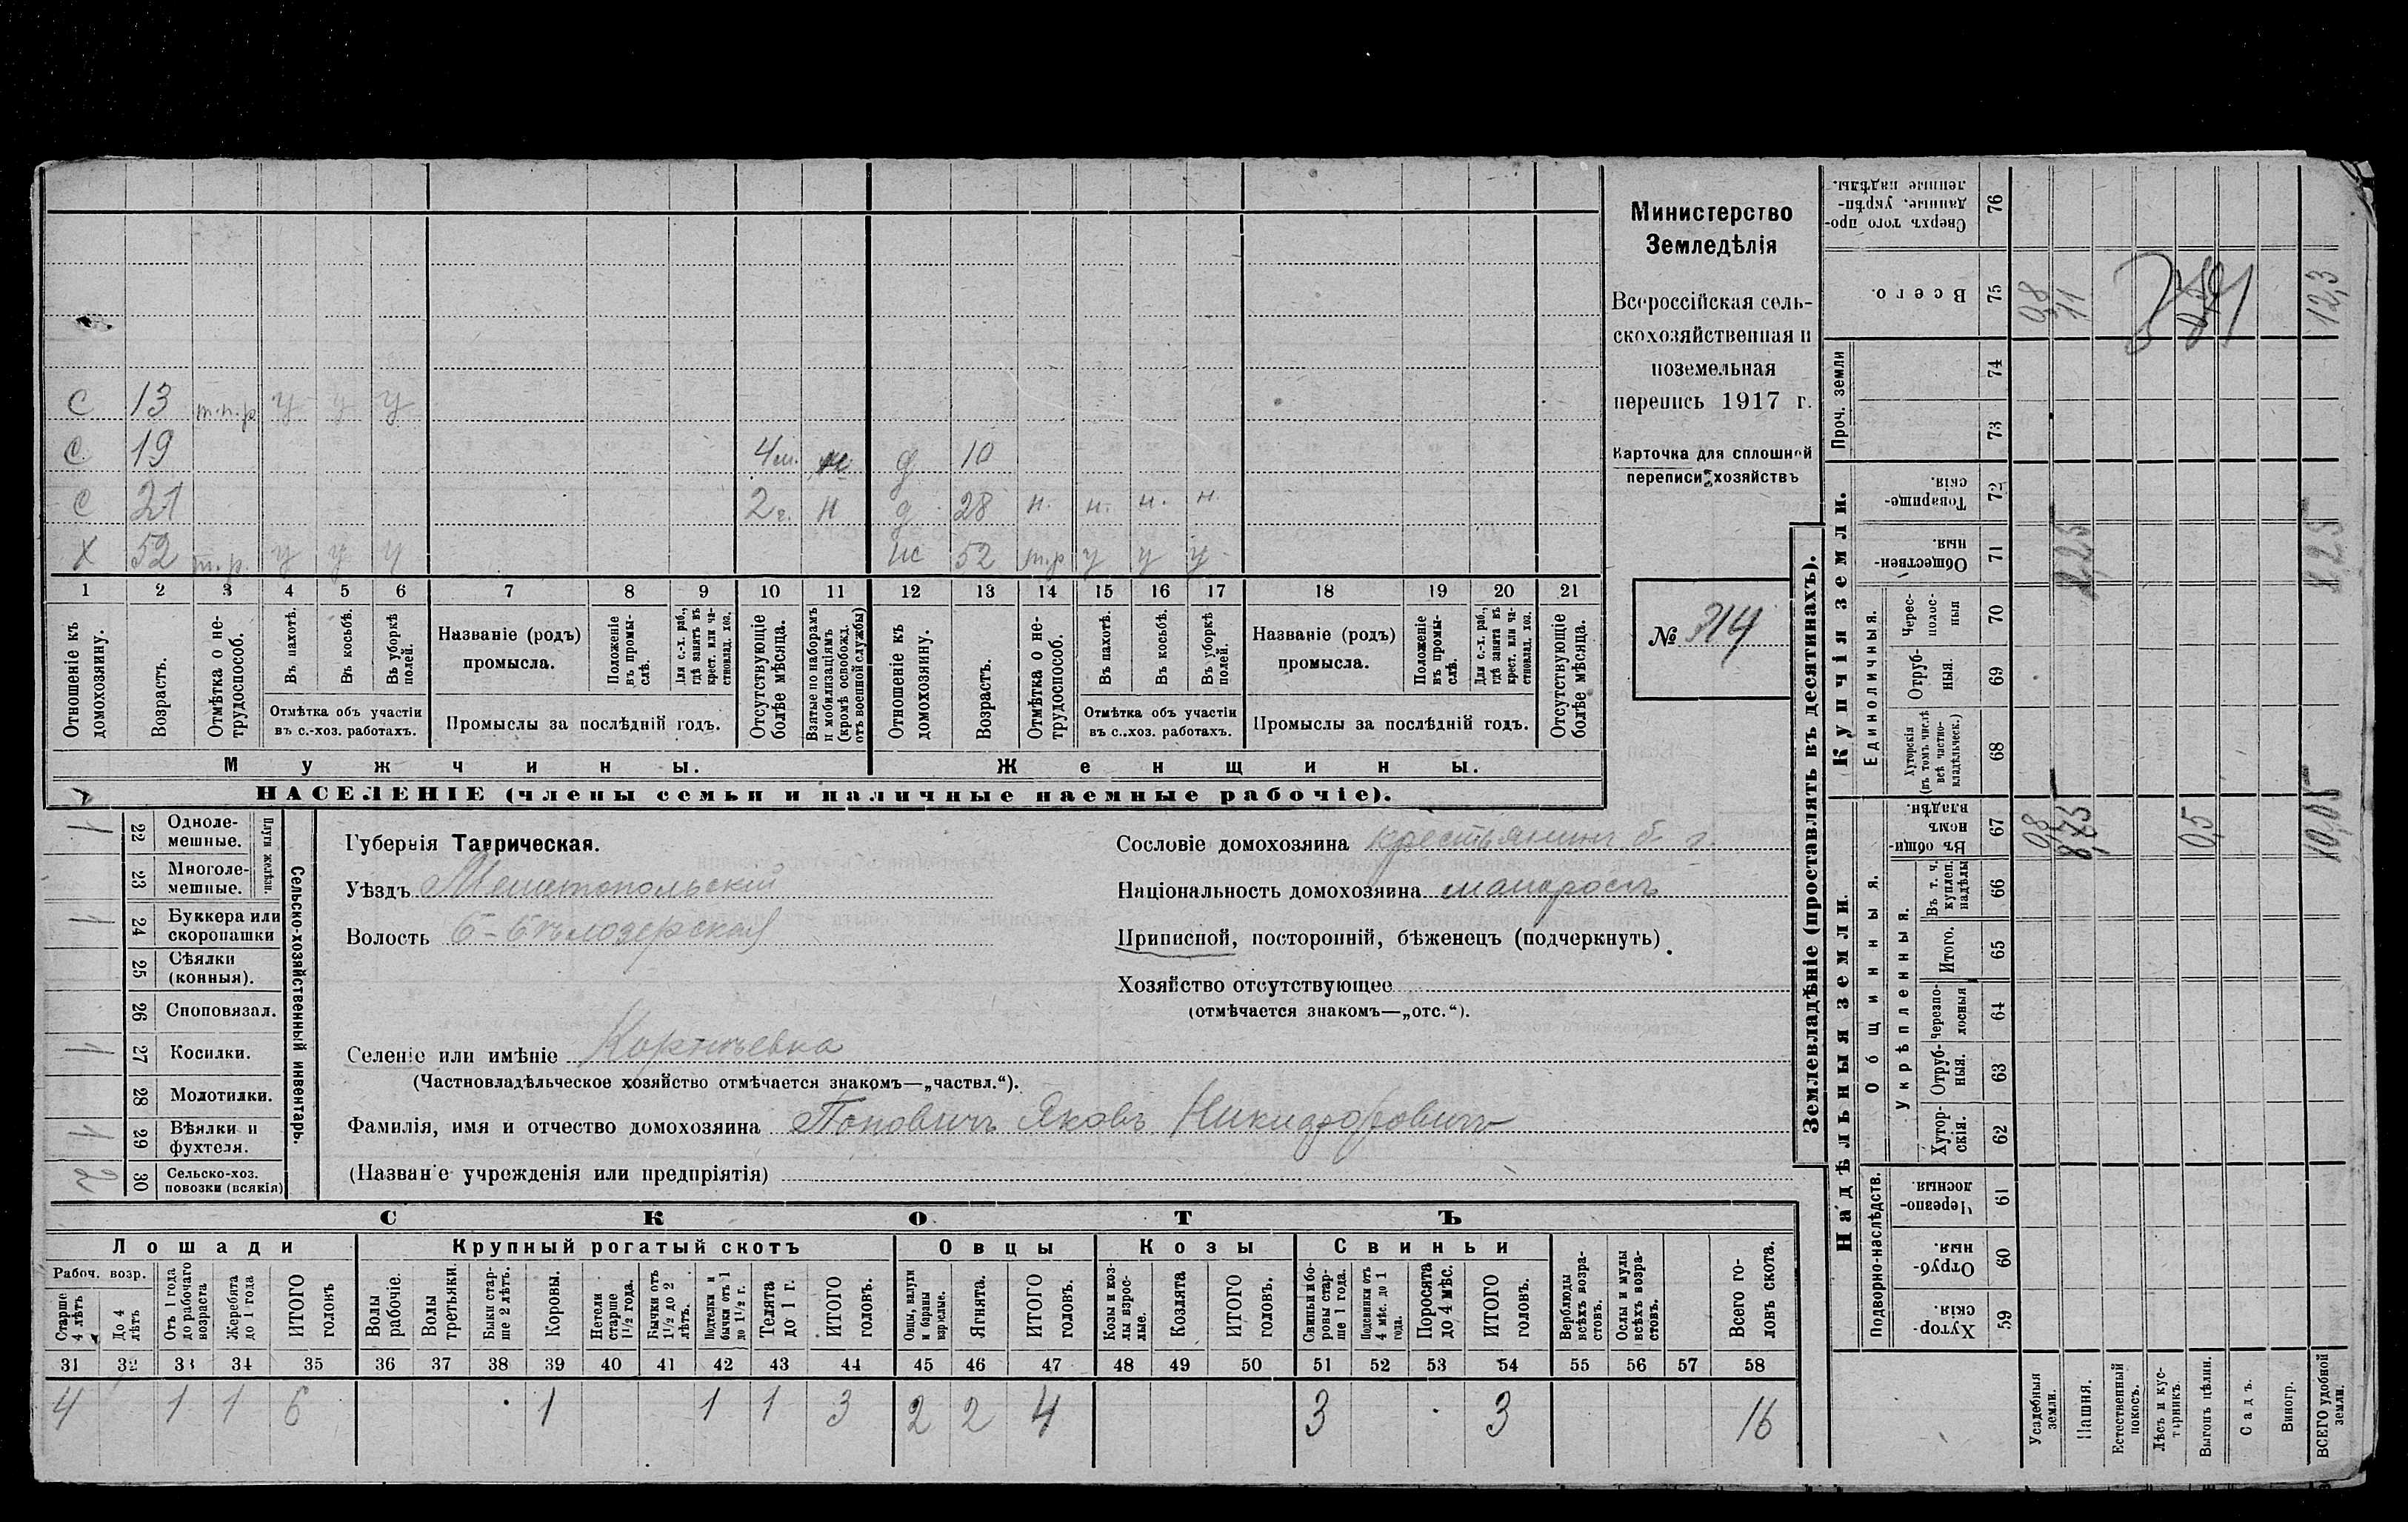 Министерство
Земледѣлія
Всероссійская сель-
скохозяйственная и
поземельная
перепись 1917 г.
Карточка для сплошной
переписи хозяйствъ
№ 314
С 13 т.п.р у у у
С 19 4 м. н д 10
С 21 2 г. н д 28 н. н. н. н
Х 52 т.р. у у у ж 52 т.р у у у
1 2 3 4 5 6 7 8 9 10 11 12 13 14 15 16 17 18 19 20 21
Отношеніе къ домохозяину.
Возрастъ.
Отмѣтка о не-трудоспособ.
Въ пахотѣ.
Въ косьбѣ.
Въ уборкѣ полей.
Отмѣтка объ участіи
въ с.-хоз. работахъ.
Названіе (родъ)
промысла.
Положеніе въ промы-слѣ.
Для с.-х. раб., гдѣ занятъ въ крест. или ча-стновлад. хоз.
Промыслы за послѣдній годъ.
Отсутствующіе болѣе мѣсяца.
Взятые по наборамъ и мобилизаціямъ (кромѣ освобожд. отъ военной службы)
Отношеніе къ домохозяину.
Возрастъ.
Отмѣтка о не-трудоспособ.
Въ пахотѣ.
Въ косьбѣ.
Въ уборкѣ полей.
Отмѣтка объ участіи
въ с.-хоз. работахъ.
Названіе (родъ)
промысла.
Положеніе въ промы-слѣ.
Для с.-х. раб., гдѣ занята въ крест. или ча-стновлад. хоз.
Промыслы за послѣдній годъ.
Отсутствующіе болѣе мѣсяца.
Мужчины. Женщины.
НАСЕЛЕНІЕ (члены семьи и наличные наемные рабочіе).
Сельско-хозяйственный инвентарь.
Плуги желѣзн.
1 22 Одноле-мешные.
23 Многоле-мешные.
1 24 Буккера или скоропашки
25 Сѣялки (конныя).
26 Сноповязал.
1 27 Косилки.
28 Молотилки.
1 29 Вѣялки и фухтеля.
2 30 Сельско-хоз. повозки (всякія)
Губернія Таврическая.
Уѣздъ Мелитопольскій
Волость Б-Бѣлозерская
Селеніе или имѣніе
(Частновладѣльческое хозяйство отмѣчается знакомъ—„частвл.“).
Фамилія, имя и отчество домохозяина Поповичъ Яковъ Никифоровичъ
(Названіе учрежденія или предпріятія)
Сословіе домохозяина крестьянинъ б. г.
Національность домохозяина малороссъ
Приписной, посторонній, бѣженецъ (подчеркнуть)
Хозяйство отсутствующее
(отмѣчается знакомъ—„отс.“).
СКОТЪ
Лошади Крупный рогатый скотъ Овцы Козы Свиньи
Рабоч. возр.
Старше 4 лѣтъ
До 4 лѣтъ
Отъ 1 года до рабочаго возраста
Жеребята до 1 года
ИТОГО головъ
Волы рабочіе.
Волы третьяки.
Быки стар-ше 2 лѣтъ.
Коровы.
Нетели старше 1½ года.
Бычки отъ 1½ до 2 лѣтъ.
Подтелки и бычки отъ 1 до 1½ г.
Телята до 1 г.
ИТОГО головъ.
Овцы, валухи и бараны взрослые.
Ягнята.
ИТОГО головъ.
Козы и коз-лы взрос-лые.
Козлята
ИТОГО головъ.
Свиньи и бо-ровы стар-ше 1 года.
Подсвинки отъ 4 мѣс. до 1 года.
Поросята до 4 мѣс.
ИТОГО головъ.
Верблюды всѣхъ возра-стовъ.
Ослы и мулы всѣхъ возра-стовъ.
Всего го-ловъ скота.
31 32 33 34 35 36 37 38 39 40 41 42 43 44 45 46 47 48 49 50 51 52 53 54 55 56 57 58
4 1 1 6 1 1 1 3 2 2 4 3 3 16
Землевладѣніе (проставлять въ десятинахъ).
Надѣльныя земли. Купчія земли. Проч. земли
Подворно-наслѣдств. Общинныя. Укрѣпленныя. Единоличныя.
Хутор-скія. 59
Отруб-ныя. 60
Черезпо-лосныя 61
Хутор-скія. 62
Отруб-ныя. 63
Черезпо-лосныя 64
Итого. 65
Въ т. ч. куплен. надѣлы 66
Въ общин-номъ владѣн. 67
Хуторскія (въ томъ числѣ всѣ частно-владѣльческ.) 68
Отруб-ныя. 69
Черес-полос-ныя 70
Обществен-ныя. 71
Товарище-скія. 72
73
74
Всего. 75
Сверхъ того про-данные, укрѣп-ленные надѣлы. 76
Усадебныя земли. 0,8 0,8
Пашня. 8,75 2,25 11
Естественный покосъ.
Лѣсъ и кус-тарникъ.
Выгонъ цѣлин. 0,5
Садъ.
Виногр.
ВСЕГО удобной земли. 10,05 2,25 12,3